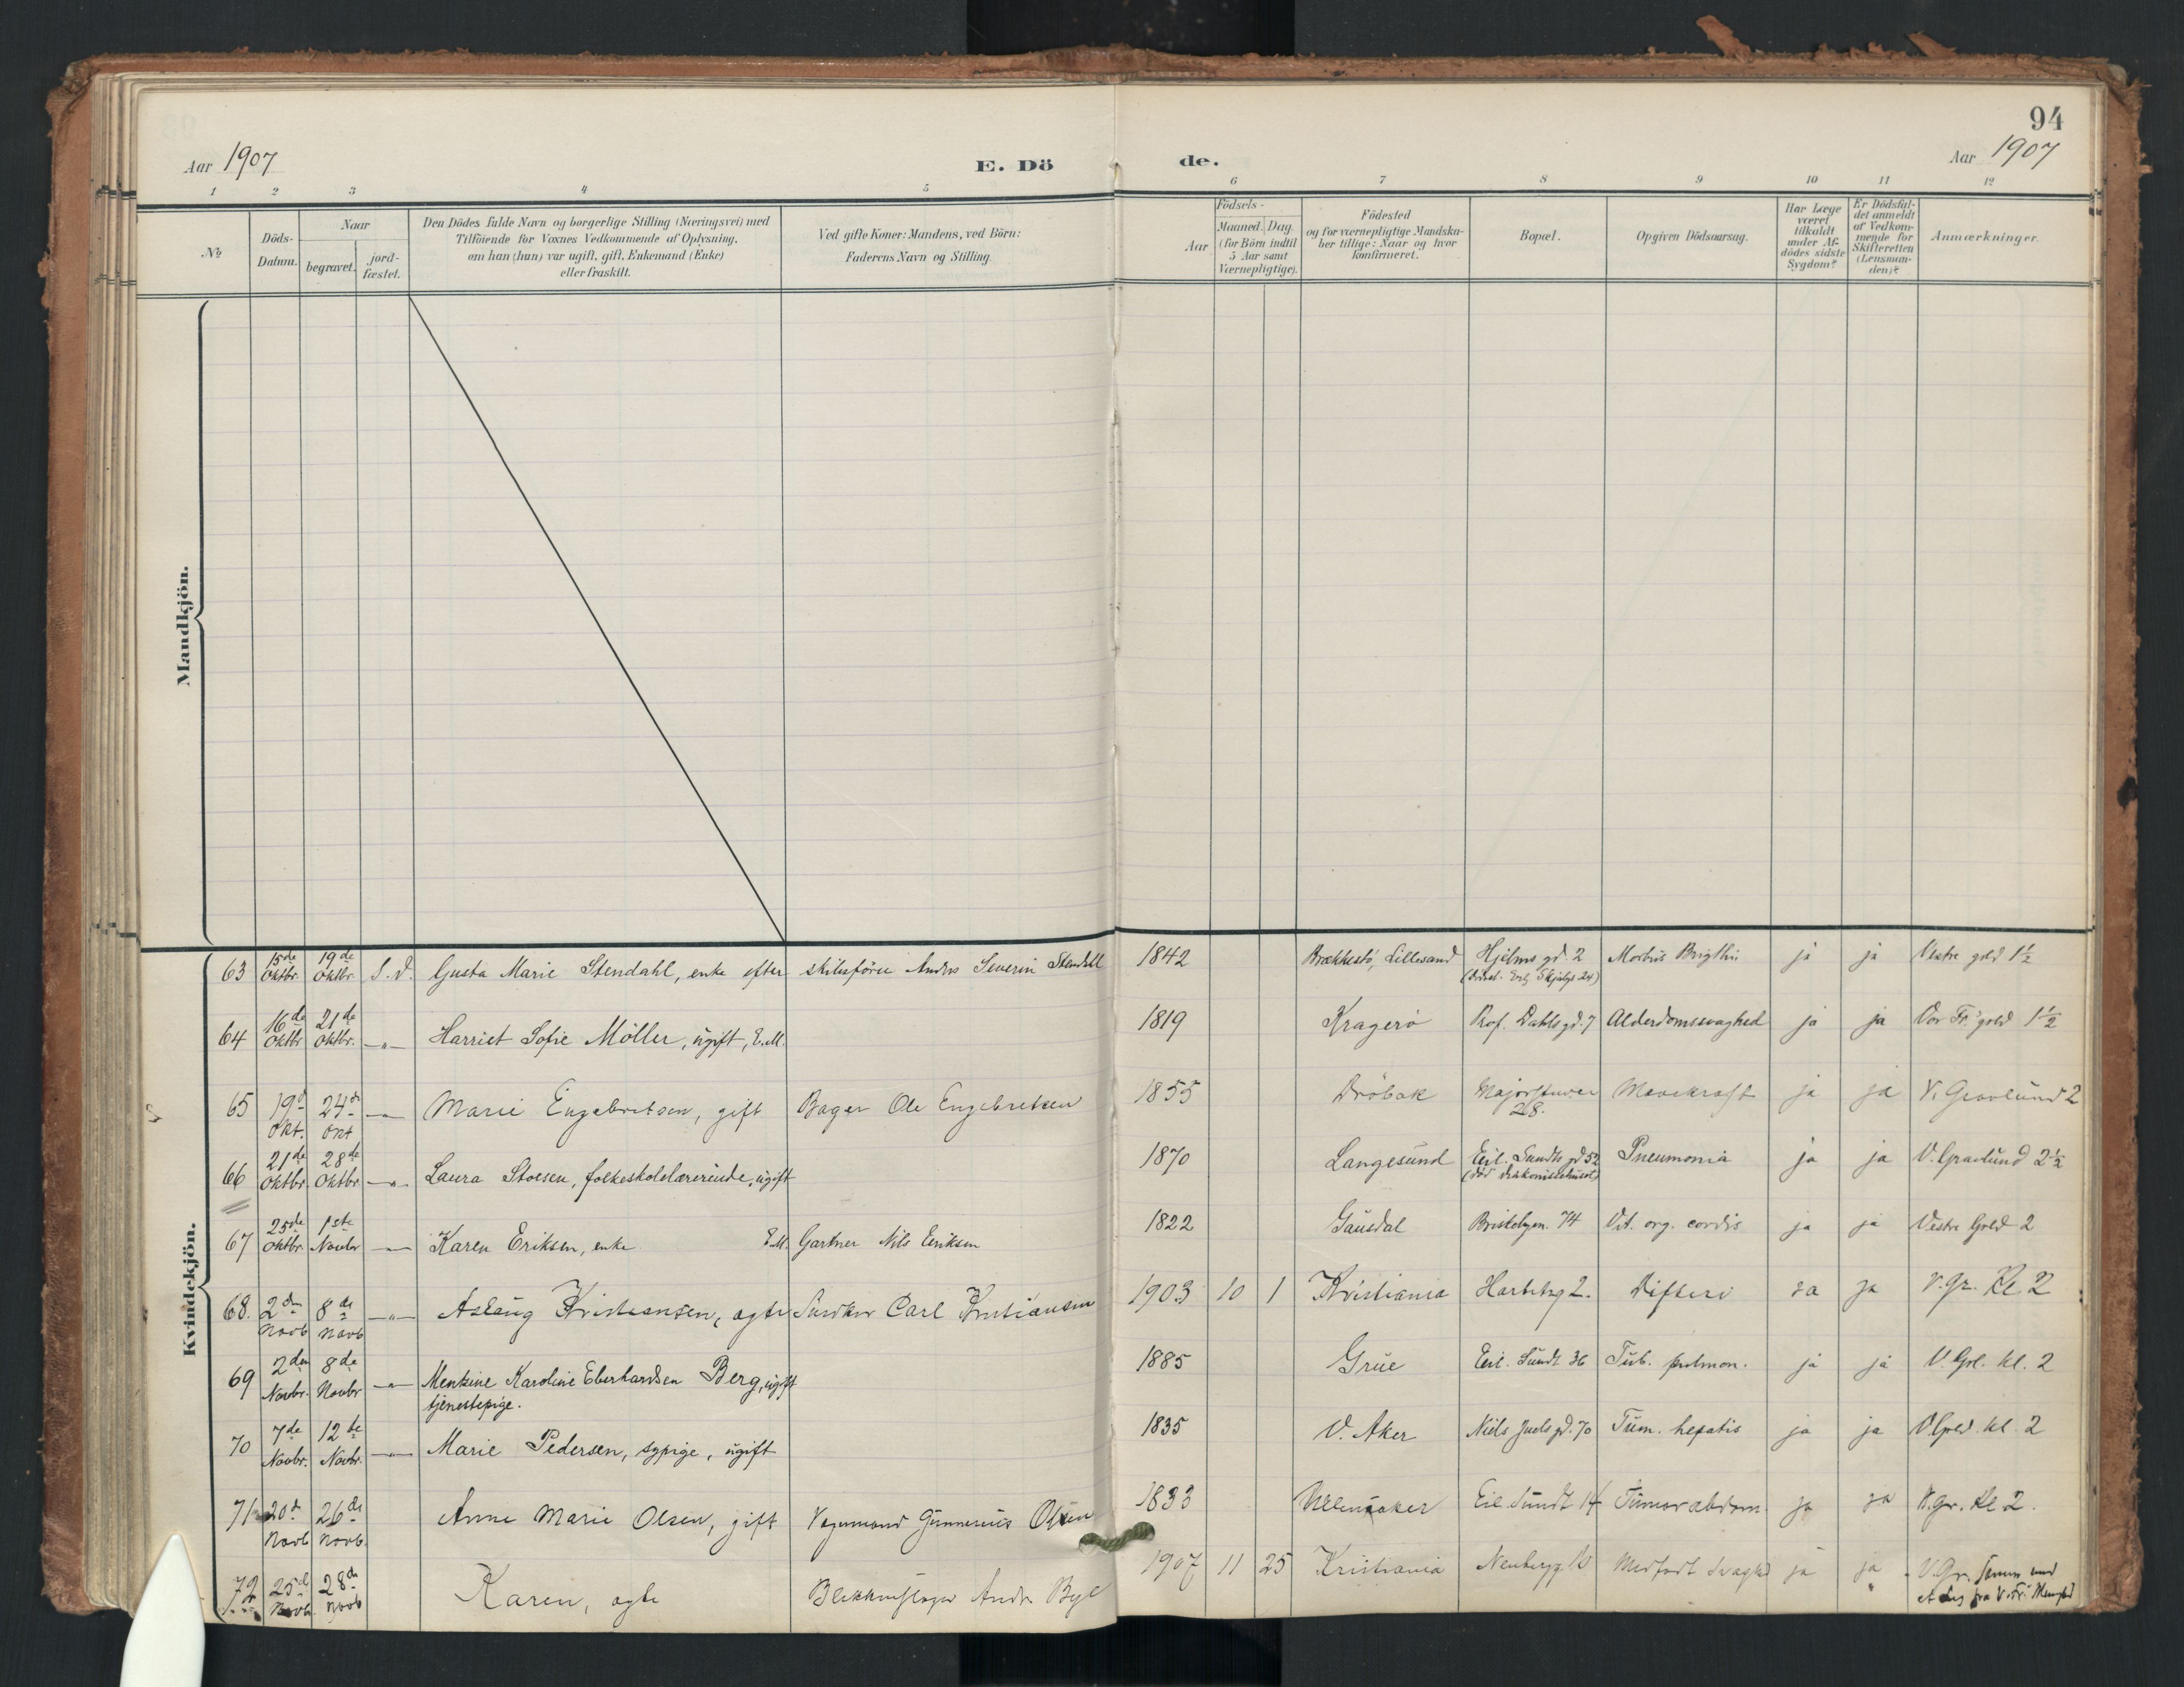 94
Aar 1907
E. Dö
de.
Aar 1907
1 2 3 4 5 6 7 8 9 10 11 12
№
Döds-
Datum.
Naar
begravet.
jord-
fæstet.
Den Dödes fulde Navn og borgerlige Stilling (Næringsvei) med
Tilföiende for Voxnes Vedkommende af Oplysning,
om han (hun) var ugift, gift, Enkemand (Enke)
eller fraskilt.
Ved gifte Koner: Mandens, ved Börn:
Faderens Navn og Stilling.
Födsels-
Aar
Maaned. Dag.
(for Börn indtil
5 Aar samt
Værnepligtige).
Födested
og for værnepligtige Mandska-
ber tillige: Naar og hvor
konfirmeret.
Bopæl.
Opgiven Dödsaarsag.
Har Læge
været
tilkaldt
under Af-
dödes sidste
Sygdom?
Er Dödsfal-
det anmeldt
af Vedkom-
mende for
Skifteretten
(Lensman-
den)?
Anmærkninger.
Mandkjön.
Kvindekjön.
63 15de Oktbr. 19de Oktbr. S. D. Gusta Marie Stendahl, enke efter skibsförer Anders Severin Stendahl 1842 Brækkestö, Lillesand Hjelms gd. 2 Morbus Brigthii ja ja Vestre grld 1½
64 16de Oktbr 21de Oktbr. —"— Harriet Sofie Möller, ugift, E.M. 1819 Kragerö Prof. Dahls gd. 7 Alderdomssvaghed ja ja Vor Fr. grld 1½
65 19d Okt. 24de Okt —"— Marie Engebretsen, gift Bager Ole Engebretsen 1855 Dröbak Majorstuvei 28. Mavekræft ja ja V. Gravlund 2
66 21de Oktbr 28de Oktbr —"— Laura Stoesen, folkeskolelærerinde, ugift 1870 Langesund Eil. Sundts gd 52 (död Diakonissehuset) Pneumonia ja ja V. Gravlund 2½
67 25de Oktbr. 1ste Novbr —"— Karen Eriksen, enke E.M. Gartner Nils Eriksen 1822 Gausdal Briskebyen. 74 Vit. org. cordis ja ja Vestre Grld 2
68. 2den Novb 8de Novb —"— Aslaug Kristiansen, ægte Snedker Carl Kristiansen 1903 10 1 Kristiania 2. Difteri ja ja V. Gr. Kl 2
69 2den Novbr. 8de Novbr —"— Menkine Karoline Eberhardsen Berg, ugift
tjenestepige. 1885 Grue Eil. Sundt 36 Tub. pulmon. ja ja V. Grl. kl. 2
70 7de Novbr. 12te Novbr. —"— Marie Pedersen, sypige, ugift 1835 V. Aker Niels Juels gd. 70 Tum. hepatis ja ja V. Grld. kl. 2
71 20de Novb 26de Novb. Anne Marie Olsen, gift Vognmand Gunnerius Olsen 1833 Ullensaker Eil. Sundt 14 Tumor abdom. ja ja V. Gr. Kl 2.
72 25de Novb. 28de Novb Karen, ægte Blikkenslager Andr. 1907 11 25 Kristiania Medfödt Svaghed ja ja V. Gr. Samme med
et Lig fra V. Fr.